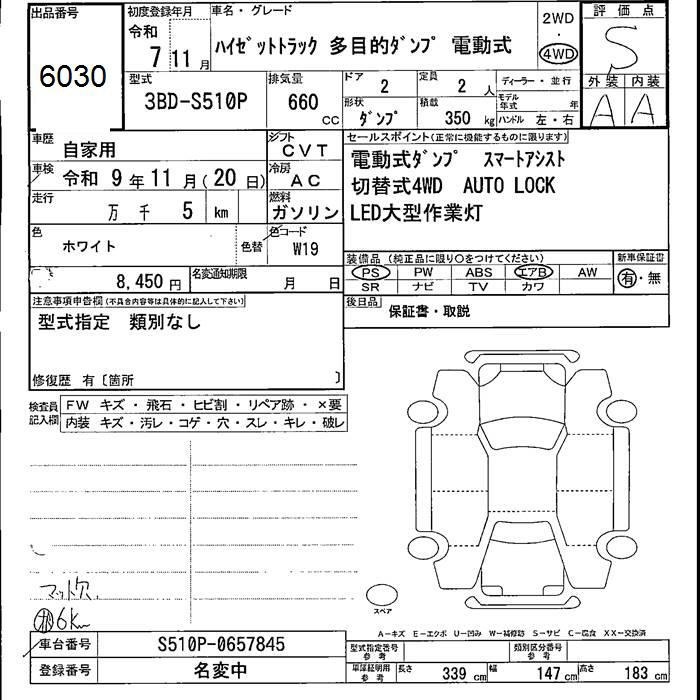 出品番号
6030
初度登録年月
令和
7 11月
車名・グレード
ハイゼットトラック 多目的ダンプ 電動式
2WD
・
4WD
評価点
S
外装 内装
A A
型式
3BD-S510P
排気量
660
CC
ドア
2
定員
2 人
ディーラー・並行
形状
ダンプ
積載
350 kg
モデル年式 年
ハンドル 左・右
車歴
自家用
シフト
CVT
車検
令和 9年 11月(20日)
冷房
AC
走行
万 千 5 km
燃料
ガソリン
色
ホワイト
色替
色コード
W19
8,450円
名変通知期限
月 日
セールスポイント(正常に機能するものに限ります)
電動式ダンプ スマートアシスト
切替式4WD AUTO LOCK
LED大型作業灯
装備品 (純正品に限り○をつけてください)
PS PW ABS エアB AW
SR ナビ TV カワ
新車保証書
有・無
後日品
保証書・取説
注意事項申告欄(不具合内容等は具体的に記入して下さい)
型式指定 類別なし
修復歴 有〔箇所 〕
検査員
記入欄
FW キズ・飛石・ヒビ割・リペア跡・×要
内装 キズ・汚レ・コゲ・穴・スレ・キレ・破レ
マット欠
6km
スペア
A-キズ E-エクボ U-凹み W-補修跡 S-サビ C-腐食 XX-交換済
車台番号
S510P-0657845
登録番号
名変中
型式指定番号
参考
類別区分番号
参考
車庫証明用
参考
長さ 339 cm 幅 147 cm 高さ 183 cm